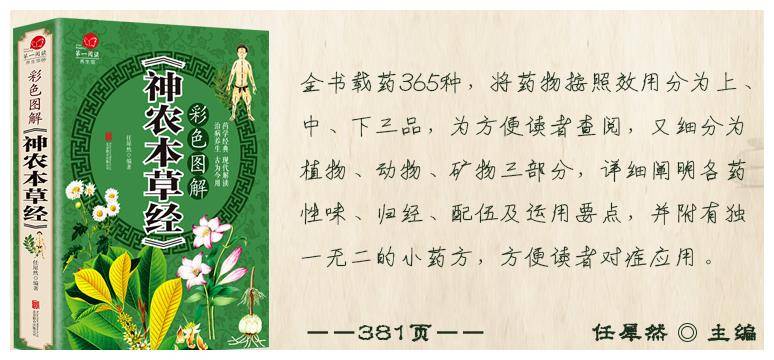 第一阅读
养生馆
彩色图解
《神农本草经》
任犀然◎编著
第一阅读
养生馆
《神农本草经》
彩色图解
药学经典 现代解读
治病养生 古为今用
任犀然◎编著
全书载药365种，将药物按照效用分为上、
中、下三品，为方便读者查阅，又细分为
植物、动物、矿物三部分，详细阐明各药
性味、归经、配伍及运用要点，并附有独
一无二的小药方，方便读者对症应用。
——381页——
任犀然 ◎ 主编